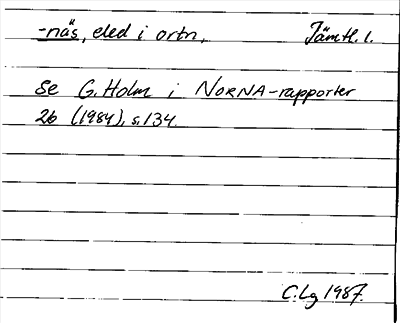 -näs, eled i ortn. Jämtl. l.
Se G. Holm i NORNA-rapporter
26 (1984), s. 134.
C. Lg 1987.